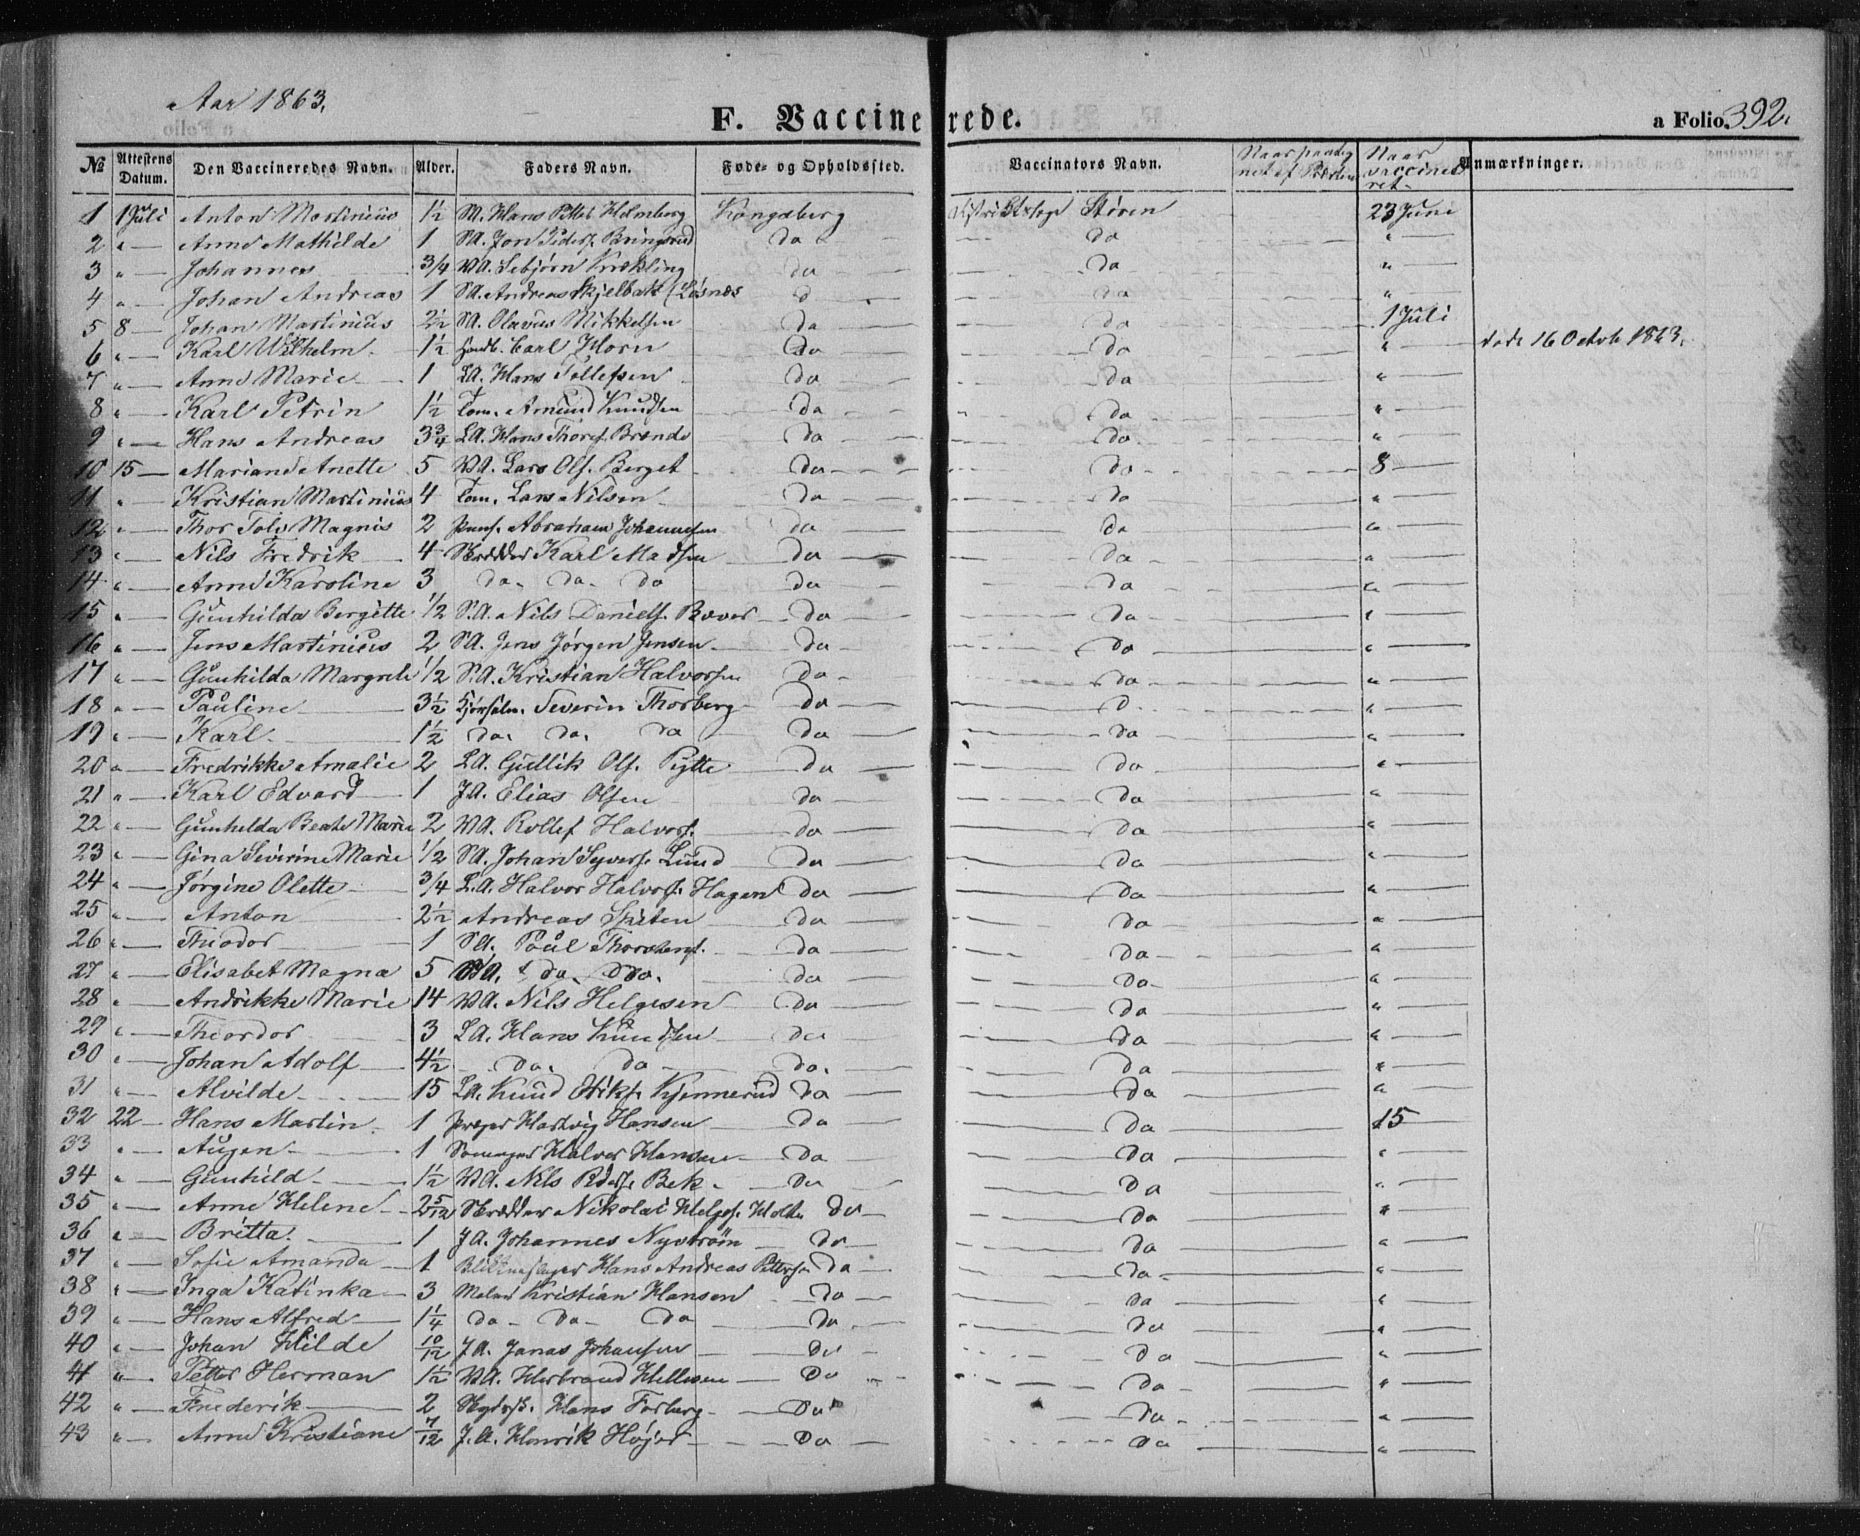 Aar 1863.
F. Vaccinerede.
a Folio 392.
No Attestens Datum. Den Vaccineredes Navn. Alder. Faders Navn. Føde- og Opholdssted. Vaccinators Navn. Naar vaccineret Anmærkninger.
1 1 Juli Anton Martinius 1½ SA. Hans Petter Holmberg Kongsberg Støren 23 Juni
2 " — Anne Mathilde 1 SA. Jon Peders. Bringsrud do do "
3 " — Johannes 3/4 VA. Sebjørn Krækling do do "
4 " — Johan Andreas 1 SA. Andreas Skjelbak (Løsnes d do "
5 8 — Johan Martinius 2½ SA. Olavus Mikkelsen do do 1 Juli
6 " — Karl Wilhelm 1½ Handl. Carl Horn do do " døde 16 Octob 1863.
7 " — Anne Marie 1 LA. Hans Tollefsen do do "
8 " — Karl Petrin 1½ Tom. Amund Knudsen do do "
9 " — Hans Andreas 3¾ LA. Hans Thores. Brænde do do "
10 15 — Mariane Anette 5 VA. Lars Ols. Berget do do 8
11 " Kristian Martinius 4 Tom. Lars Nilsen do do "
12 " — Thor Tolv Magnis 2 Abraham Johannesen do do "
13 " — Nils Fredrik 4 Skrædder Karl Madsen do do "
14 " — Anne Karoline 3 do. do. do do do "
15 " — Gunhilda Bergitte ½ S.A. Nils Daniels. Bæver do do "
16 " — Jens Martinius 2 SA. Jens Jørgen Jensen do do "
17 " — Gunhilda Margrete ½ S.A. Kristian Halvorsen do do "
18 " — Pauline 3½ Severin Thorberg do d. "
19 " — Karl 1½ do. do. do do do "
20 " — Fredrikke Amalie 2 LA. Gullik Ols. Pytte do do "
21 " — Karl Edvard 1 JA. Elias Olsen do do "
22 " — Gunhilda Beate Marie 2 VA. Rollef Halvors. do do "
23 " — Gina Severine Marie ½ SA. Johan Syvers. Lund do do "
24 " — Jørgine Olette 3/4 L.A. Halvor Halvors. Hagen do do "
25 " — Anton 2½ Andreas Spiten do do "
26 " — Theodor 1 SA. Paul Thorstens. do do "
27 " — Elisabet Magna 5 do. do. do do "
28 " — Andrikke Marie 14 VA. Nils Helgesen do do "
29 " — Theordor 3 LA. Hans Knudsen do do "
30 " — Johan Adolf 4½ do. do do. do "
31 " — Alvilde 15 LA. Knud Eriks. Kjennerud do do "
32 22 — Hans Martin 1 Præger Hartvig Hansen do do 15
33 " — Augen 1 Halvor Hansen do do "
34 " — Gunhild 1½ VA. Nils Peders. Bek do do "
35 " — Anne Helene 2 5/12 Skrædder Nikolai Helges. do do "
36 " — Britta 1 JA. Johannes Nystrøm do do "
37 " — Sofie Amanda 1 Blikkenslager Hans Andreas Petters. do do "
38 " — Inga Katinka 3 Maler Kristian Hansen do do "
39 " — Hans Alfred 1¼ do do do do do "
40 " — Johan Hilde 10/12 JA. Jonas Johansen do do "
41 " — Petter Herman 1½ VA. Herbrand Hellesen do do "
42 " — Frederik 2 Hans Forberg do do "
43 " — Anne Kristiane 7/12 J.A. Henrik Højer do do "